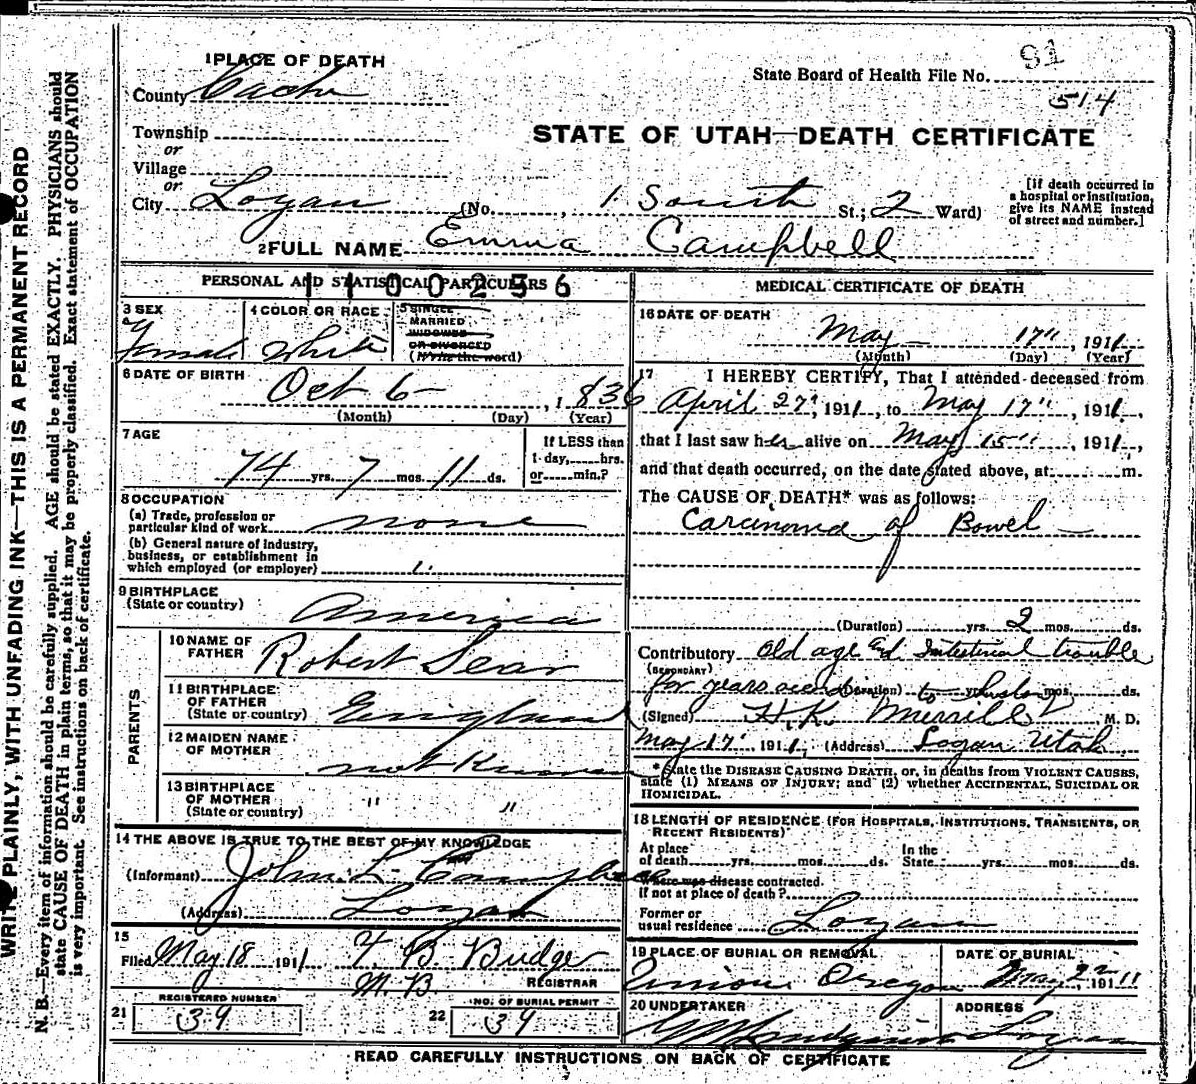 WRITE PLAINLY, WITH UNFADING INK—THIS IS A PERMANENT RECORD
N. B.—Every item of information should be carefully supplied. AGE should be stated EXACTLY. PHYSICIANS should
state CAUSE OF DEATH in plain terms, so that it may be properly classified. Exact statement of OCCUPATION
is very important. See instructions on back of certificate.
1 PLACE OF DEATH
County Cache
Township
or
Village
or
City Logan (No. , 1 South St.; 2 Ward)
State Board of Health File No. 91
514
STATE OF UTAH—DEATH CERTIFICATE
[If death occurred in
a hospital or institution,
give its NAME instead
of street and number.]
2 FULL NAME Emma Campbell
PERSONAL AND STATISTICAL PARTICULARS
1100256
3 SEX
Female
4 COLOR OR RACE
White
5 SINGLE
MARRIED
WIDOWED
OR DIVORCED
(Write the word)
6 DATE OF BIRTH
Oct 6 , 1836
(Month) (Day) (Year)
7 AGE
74 yrs. 7 mos. 11 ds.
If LESS than
1 day, hrs.
or min.?
8 OCCUPATION
(a) Trade, profession or
particular kind of work none
(b) General nature of industry,
business, or establishment in
which employed (or employer) "
9 BIRTHPLACE
(State or country) America
PARENTS
10 NAME OF
FATHER Robert Sear
11 BIRTHPLACE
OF FATHER
(State or country) England
12 MAIDEN NAME
OF MOTHER
not Known
13 BIRTHPLACE
OF MOTHER
(State or country) " "
14 THE ABOVE IS TRUE TO THE BEST OF MY KNOWLEDGE
(Informant) John L. Campbell
(Address) Logan
15
Filed May 18 1911 B. Budge
M. D. REGISTRAR
REGISTERED NUMBER
21 39
NO. OF BURIAL PERMIT
22 39
MEDICAL CERTIFICATE OF DEATH
16 DATE OF DEATH
May 17" , 1911
(Month) (Day) (Year)
17 I HEREBY CERTIFY, That I attended deceased from
April 27", 1911, to May 17", 1911,
that I last saw her alive on May 15", 1911,
and that death occurred, on the date stated above, at m.
The CAUSE OF DEATH* was as follows:
Carcinoma of Bowel
(Duration) yrs. 2 mos. ds.
Contributory Old age and Intesterial trouble
(SECONDARY)
for years according (Duration) to yrs. history mos. ds.
(Signed) H. K. Merrill M. D.
May 17" 1911 (Address) Logan Utah
*State the DISEASE CAUSING DEATH, or, in deaths from VIOLENT CAUSES,
state (1) MEANS OF INJURY; and (2) whether ACCIDENTAL, SUICIDAL OR
HOMICIDAL.
18 LENGTH OF RESIDENCE (FOR HOSPITALS, INSTITUTIONS, TRANSIENTS, OR
RECENT RESIDENTS)
At place In the
of death yrs. mos. ds. State yrs. mos. ds.
Where was disease contracted.
If not at place of death?
Former or
usual residence Logan
19 PLACE OF BURIAL OR REMOVAL
Union Oregon
DATE OF BURIAL
May 22 1911
20 UNDERTAKER
ADDRESS
Logan
READ CAREFULLY INSTRUCTIONS ON BACK OF CERTIFICATE